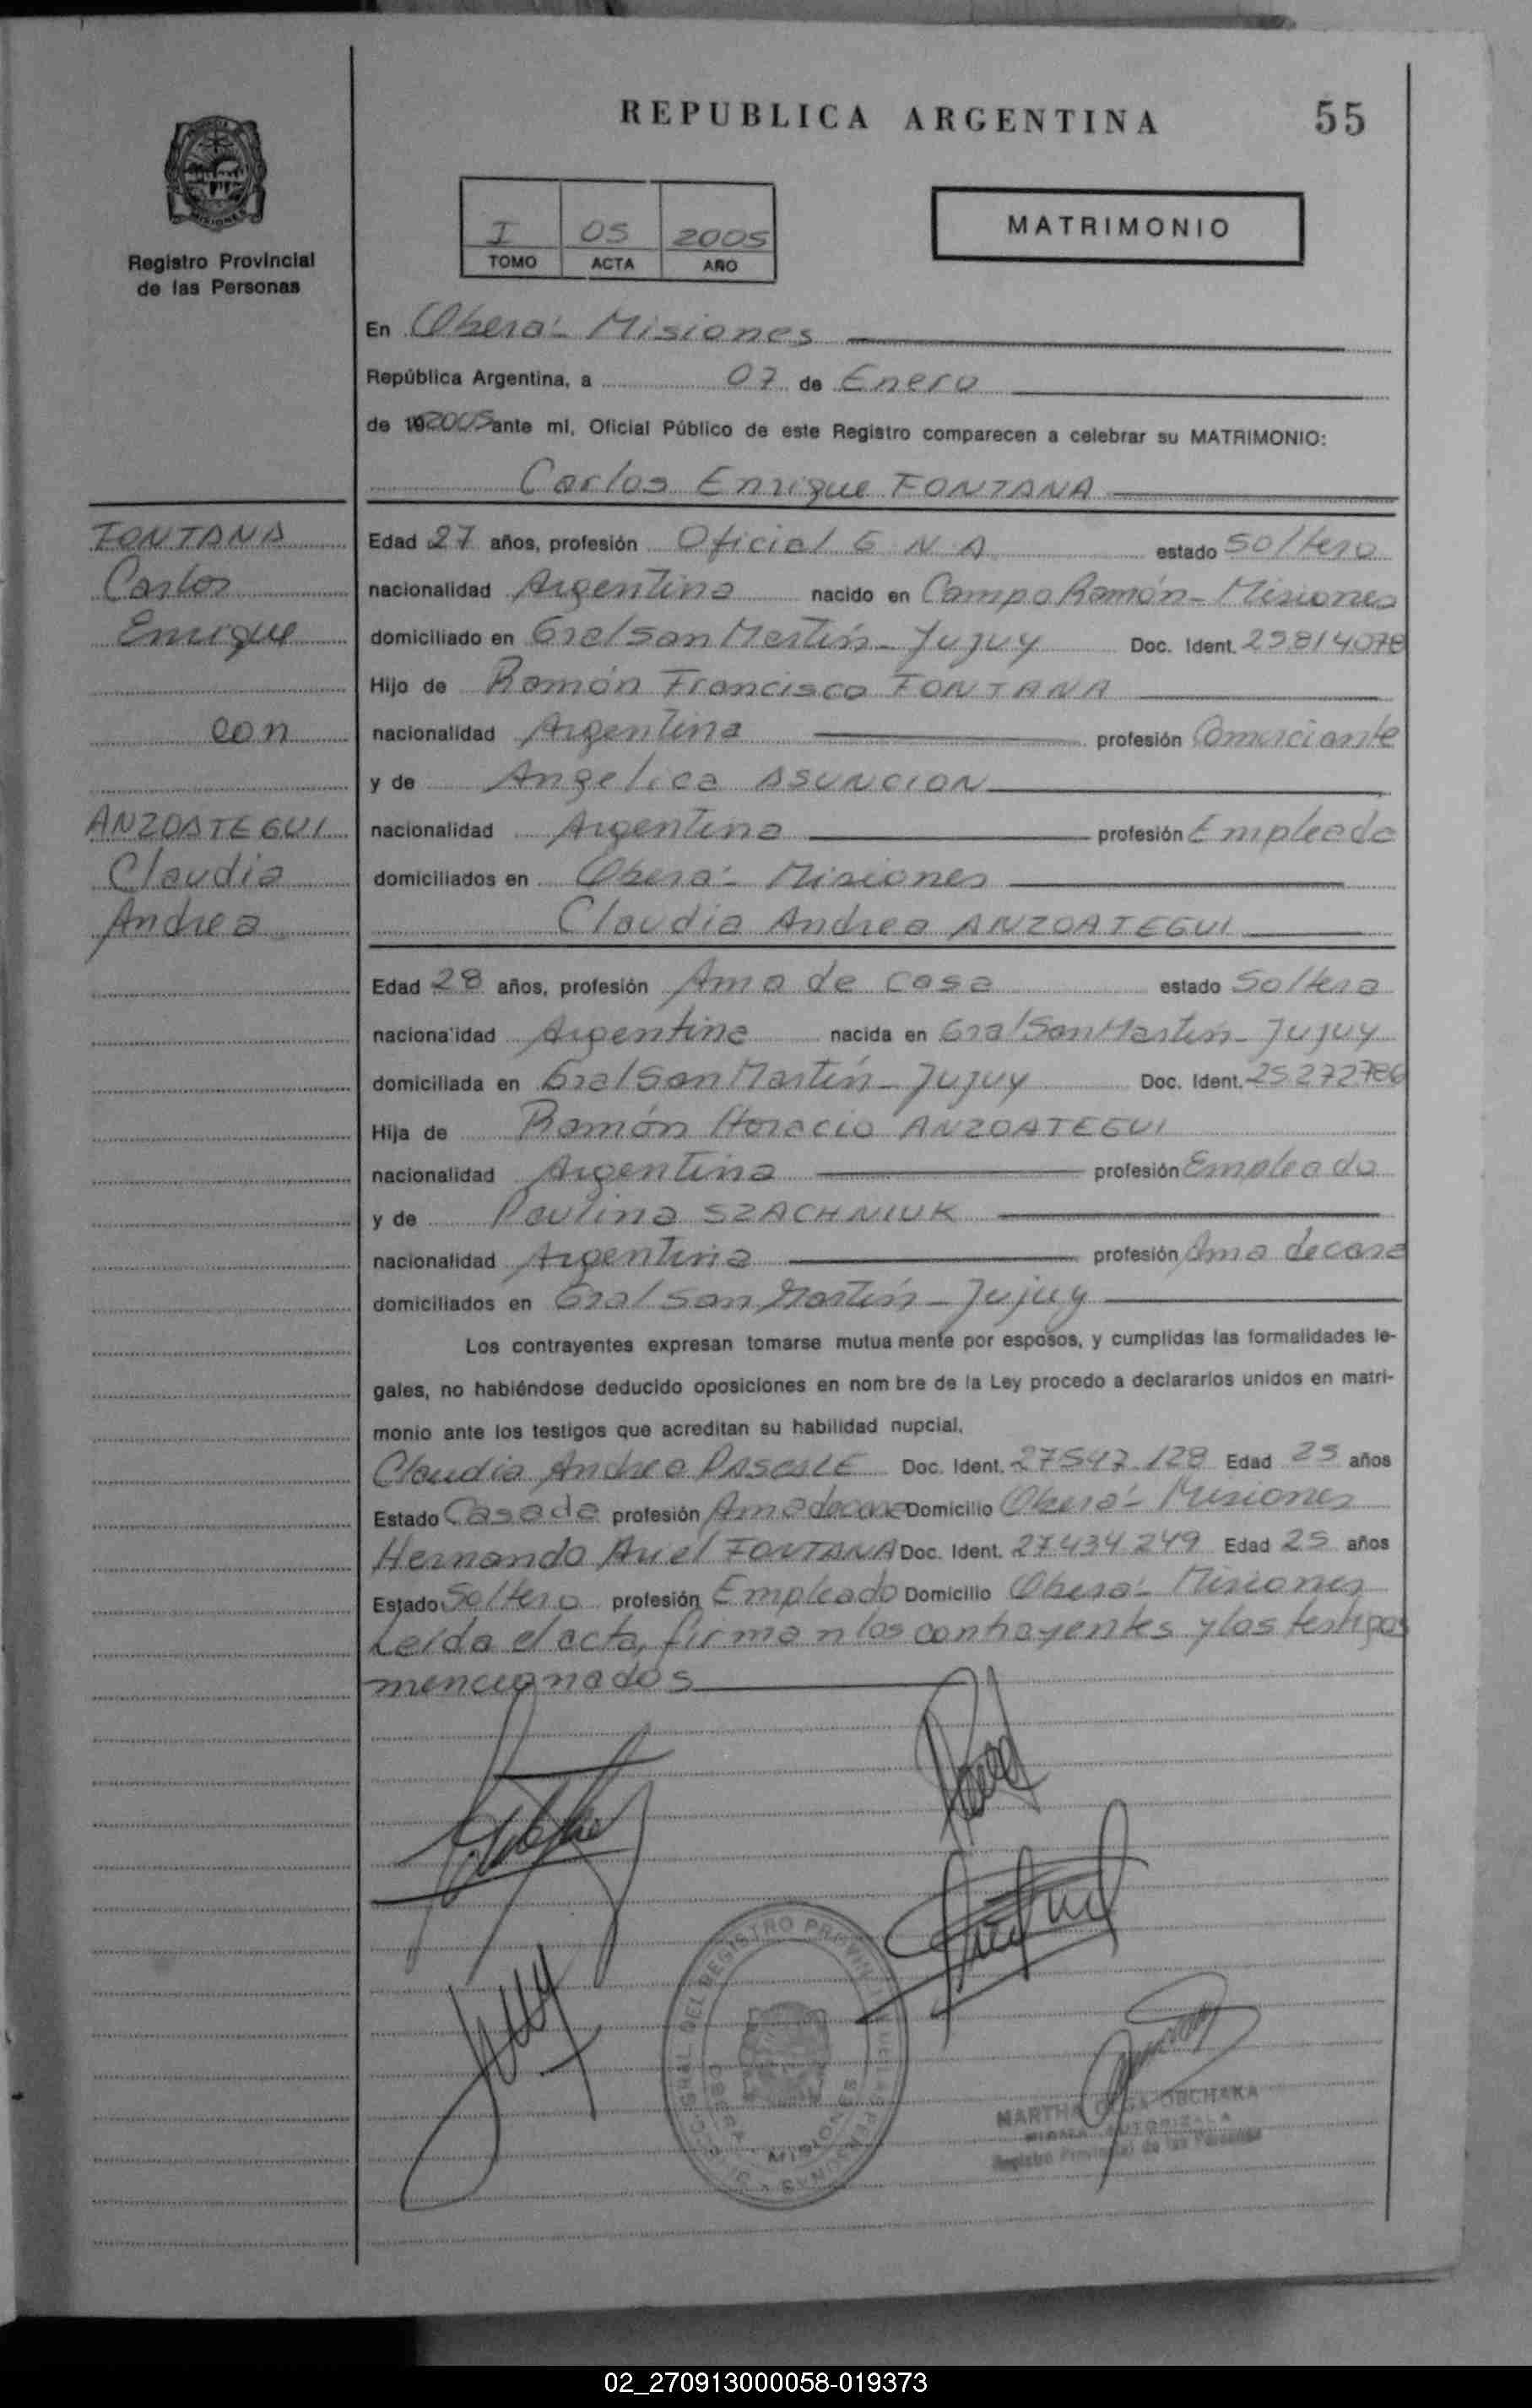 REPUBLICA ARGENTINA
55
I 05 2005
TOMO ACTA AÑO
MATRIMONIO
Registro Provincial
de las Personas
En Oberá - Misiones
República Argentina, a 07 de Enero
de 19 2005 ante mí, Oficial Público de este Registro comparecen a celebrar su MATRIMONIO:
Carlos Enrique FONTANA
FONTANA
Carlos
Enrique
con
ANZOATEGUI
Claudia
Andrea
Edad 27 años, profesión Oficial G N A estado Soltero
nacionalidad Argentina nacido en Campo Ramón - Misiones
domiciliado en Gral San Martín - Jujuy Doc. Ident.
Hijo de Ramón Francisco FONTANA
nacionalidad Argentina profesión Comerciante
y de Angelica ASUNCION
nacionalidad Argentina profesión Empleada
domiciliados en Oberá - Misiones
Claudia Andrea ANZOATEGUI
Edad 28 años, profesión Ama de casa estado Soltera
nacionalidad Argentina nacida en Gral San Martín - Jujuy
domiciliada en Gral San Martín - Jujuy Doc. Ident. 25.272786
Hija de Ramón Horacio ANZOATEGUI
nacionalidad Argentina profesión Empleado
y de Paulina SZACHNIUK
nacionalidad Argentina profesión Ama de casa
domiciliados en Gral San Martín - Jujuy
Los contrayentes expresan tomarse mutua mente por esposos, y cumplidas las formalidades le-
gales, no habiéndose deducido oposiciones en nom bre de la Ley procedo a declararlos unidos en matri-
monio ante los testigos que acreditan su habilidad nupcial.
Claudia Andrea Doc. Ident. 27547.128 Edad 25 años
Estado Casada profesión Ama de casa Domicilio Oberá - Misiones
Hernando Ariel FONTANA Doc. Ident. 27.434.249 Edad 25 años
Estado Soltero profesión Empleado Domicilio Oberá - Misiones
Leída el acta, firman los contrayentes y los testigos
mencionados
MARTHA OLGA
Registro Provincial de las Personas
02_270913000058-019373